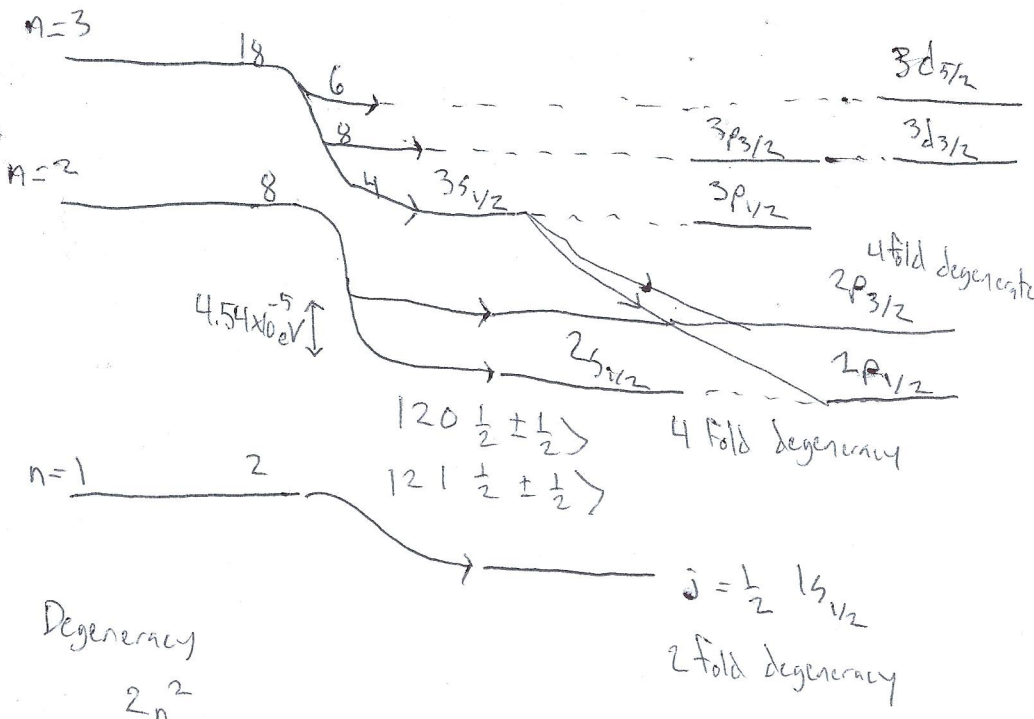 n=3
18
6
3d5/2
8
3p3/2
3d3/2
n=2
8
4
3s1/2
3p1/2
4 fold degenerate
2p3/2
4.54x10^-5 eV
2s1/2
2p1/2
|2 0 1/2 ± 1/2>
4 fold degeneracy
|2 1 1/2 ± 1/2>
n=1
2
j = 1/2 1s1/2
2 fold degeneracy
Degeneracy
2n^2